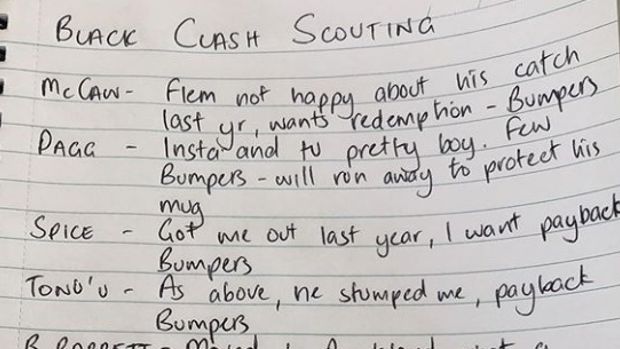 BLACK CLASH SCOUTING
McCAW - Flem not happy about his catch
last yr, wants redemption - Bumpers
DAGG - Insta and tv pretty boy. Few
Bumpers - will run away to protect his
mug
SPICE - Got me out last year, I want payback
Bumpers
TONU'U - As above, he stumped me, payback
Bumpers
B. BARRETT - Moved